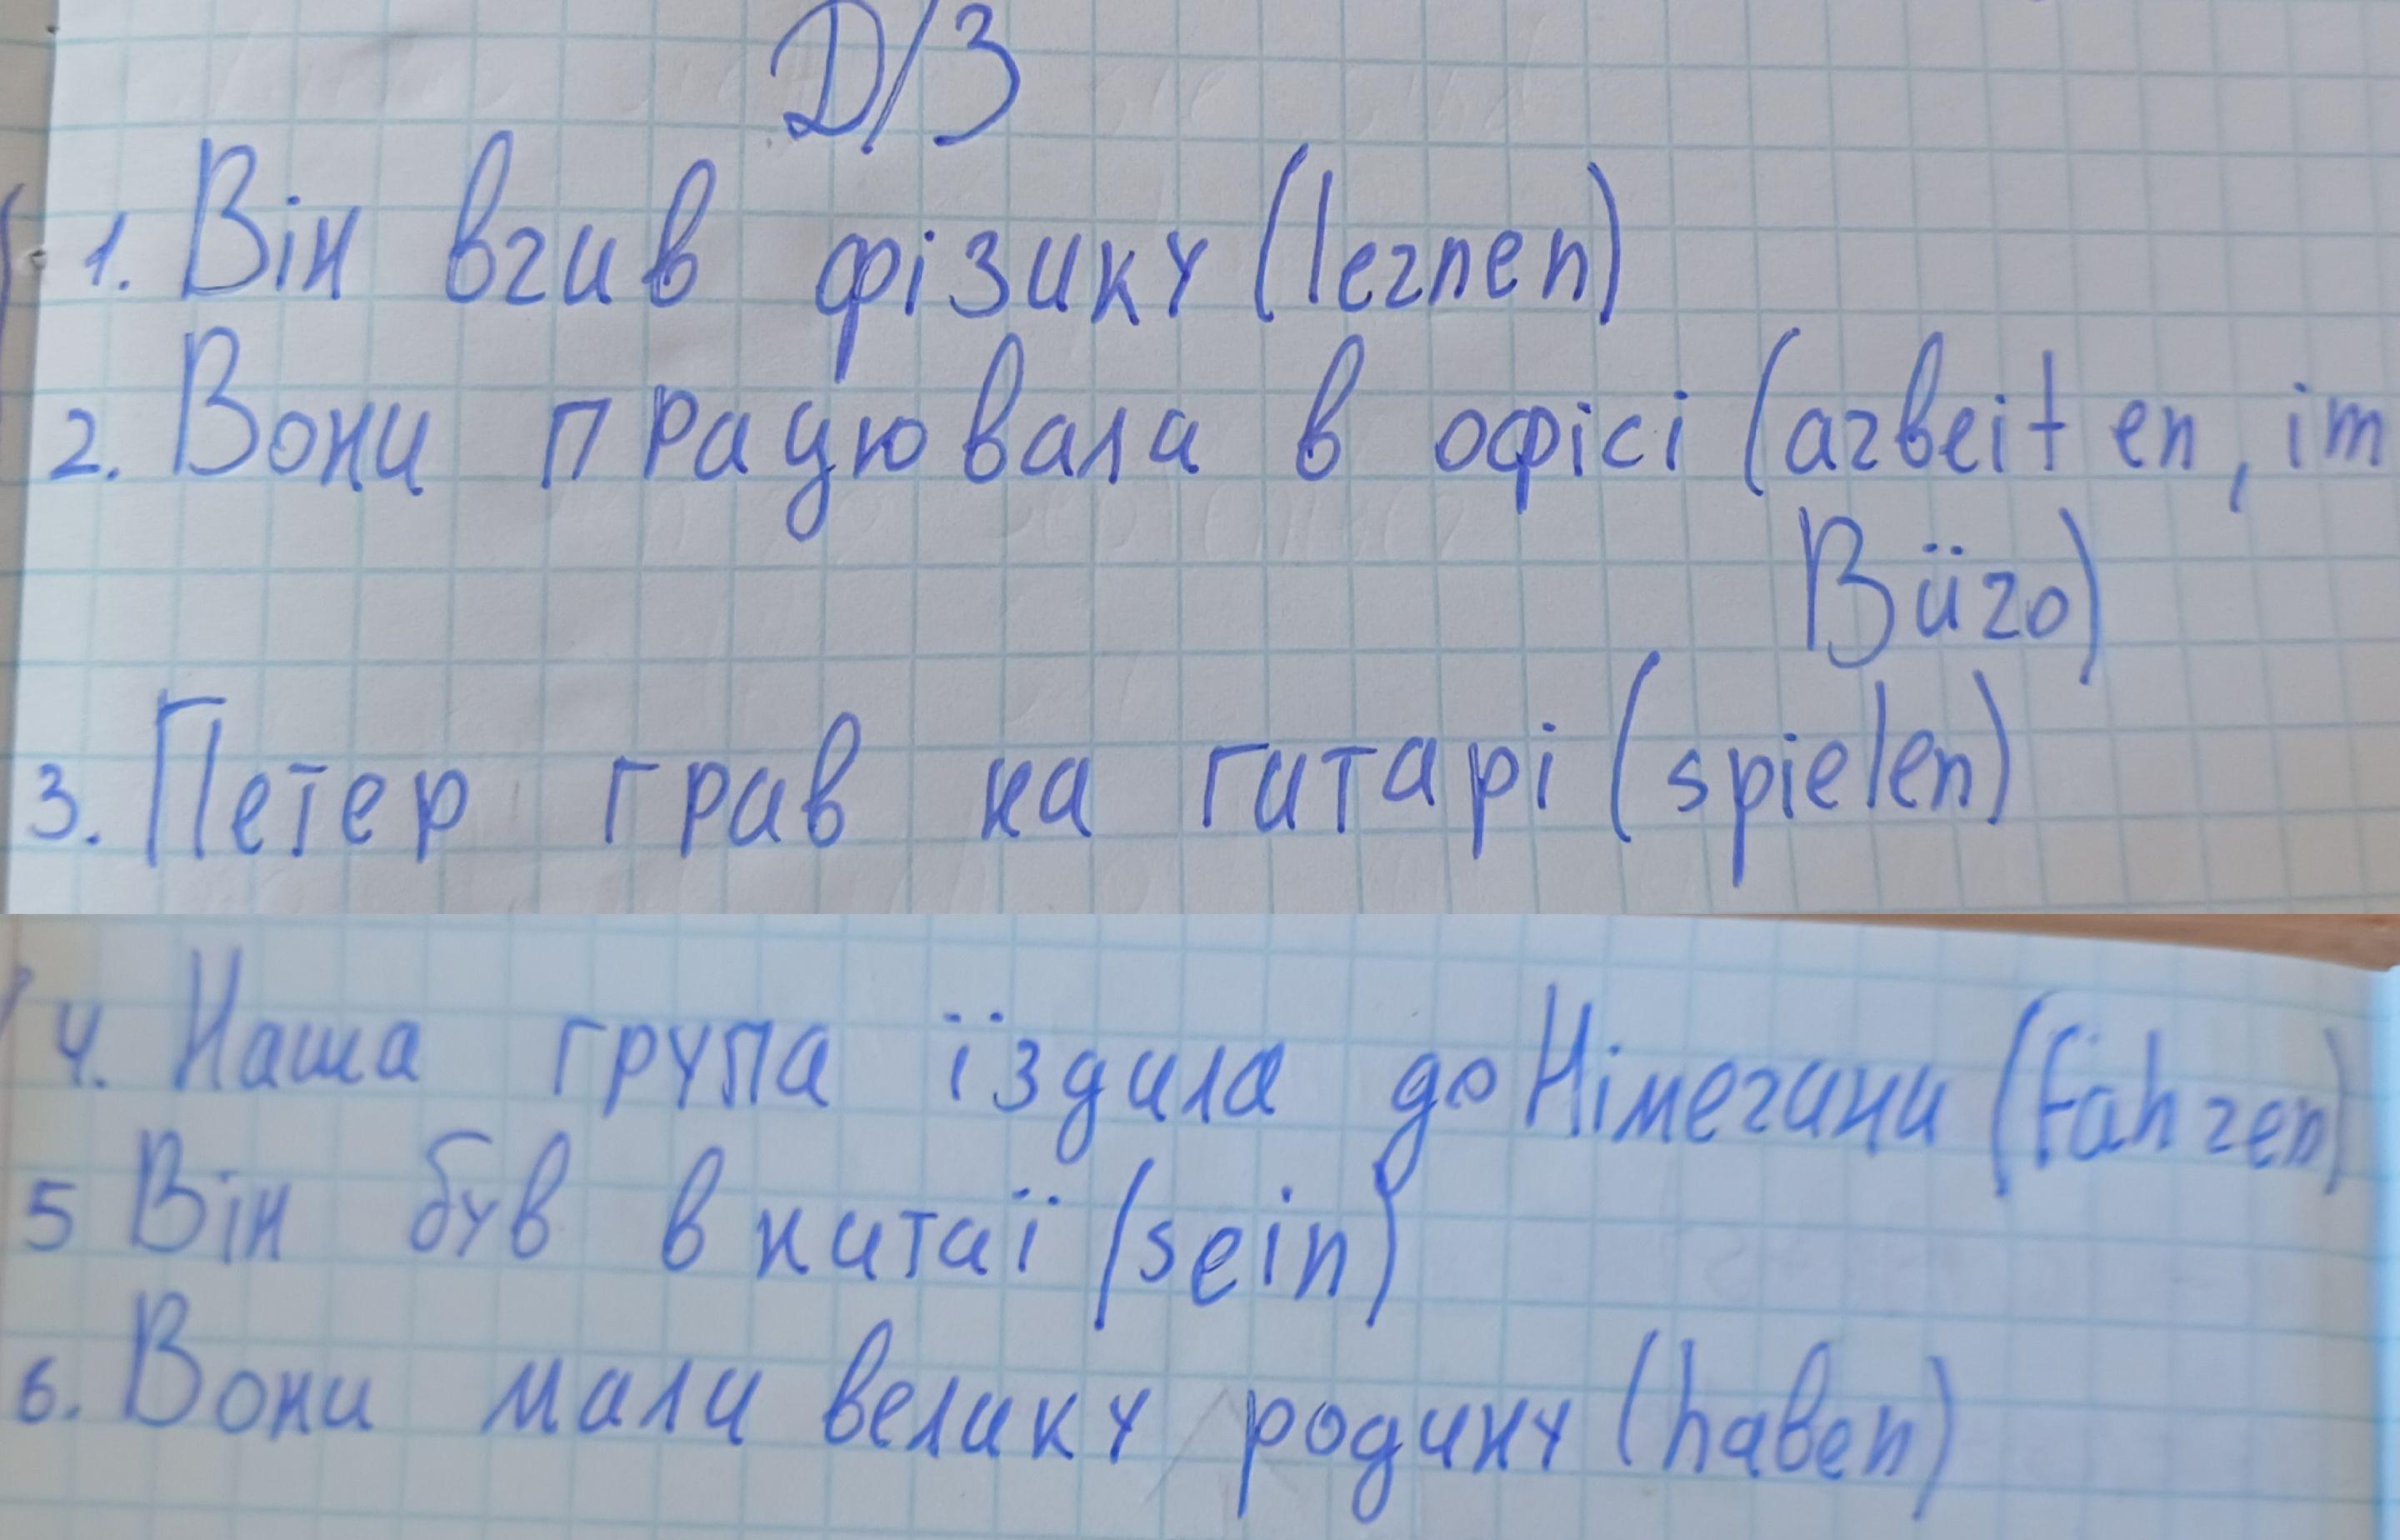 Д/З
1. Він вчив фізику (lernen)
2. Вони працювала в офісі (arbeiten, im
Büro)
3. Петер грав на гитарі (spielen)
4. Наша група їздила до Німечини (fahren)
5 Він був в китаї (sein)
6. Вони мали велику родину (haben)